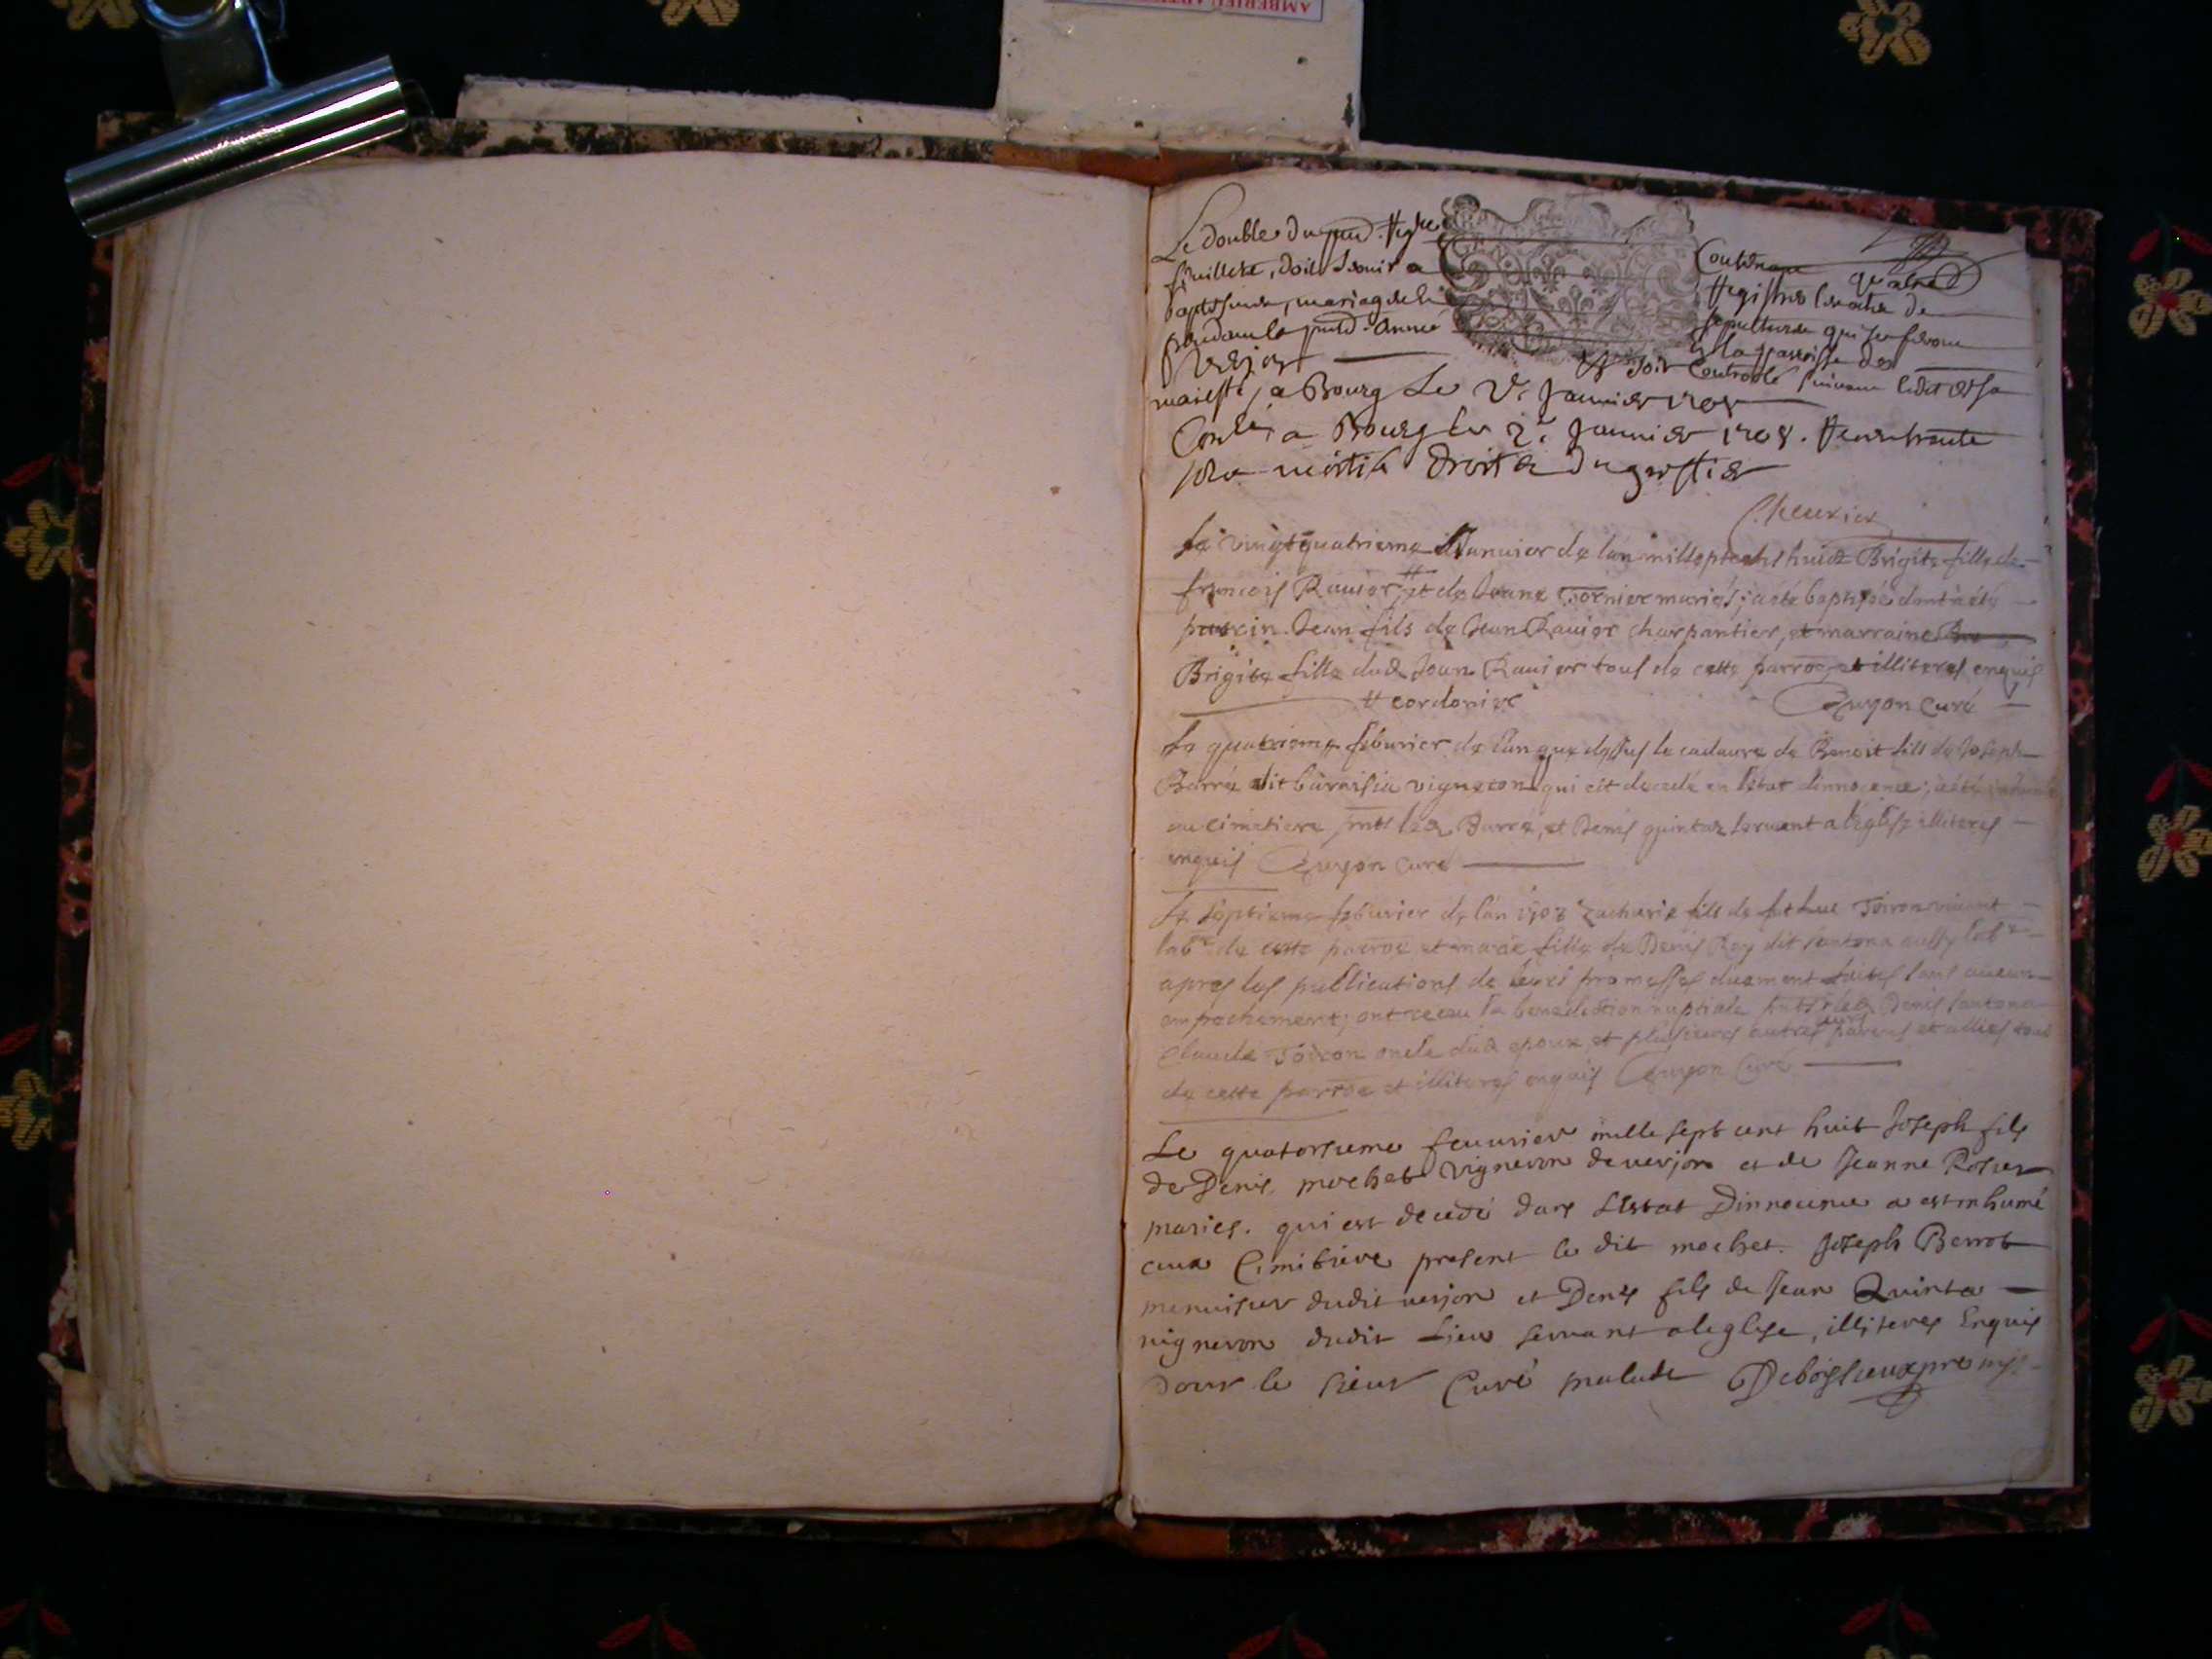 Le double du pnd. Regre Contenant quatre
feuillets, doit servir a Registre des actes de
baptesmes, mariages et sepultures qui se feront
pendant la pntd. année en la parroisse de
Verjon et doit Controolé suivant ledit de sa
maiesté, a Bourg Le 2e Januier 1708
Conlé a Bourg le 2e Januier 1708.
droits du greffier
Cheurier
Le vingtquatrieme Januier de lan millseptcent huict Brigite fille de
francois Rauier # et de Jeane Cornier mariés; a esté baptisée dont a été
parrein Jean fils de Jean Rauier charpantier, et marraine
Brigite fille dud Jean Rauier tous de cette parroe, et illiteres enquis
# cordonier Guyon curé
Le quatrieme feburier de lan que dessus le cadaure de Benoit fils de Joseph
Barré dit vigneron qui est decedé en lestat dinnocence; a été inhumé
au cimetiere pnts led Barré, et Denis quintaz seruant a leglise illiteres
enquis Guyon curé
Le septieme feburier de lan 1708 Zacharie fils de fut Luc Toiron viuant
labr de cette parroe et marie fille de Denis Rey dit santona aussy labr
apres les publications de leurs promesses duement faites sans aucun
empechement; ont receu la benediction nuptiale pnts led Denis santona
Claude Toiron oncle dud epoux et plusieurs autres leurs parens et alliés tous
de cette parroe et illiteres enquis Guyon Curé
Le quatorsieme feuurier mille sept cent huit Joseph fils
de Denis mochet vigneron de verjon et de Jeanne Rosier
maries. qui est decedé dans Lestat Dinnocence a est inhumé
aux Cimitiere present le dit mochet. Joseph Berrot
menuisier dudit verjon et Denis fils de Jean Quinta
vigneron dudit Lieu seruant a leglise, illiteres Enquis
Pour le sieur Curé malade Deboissieux pre